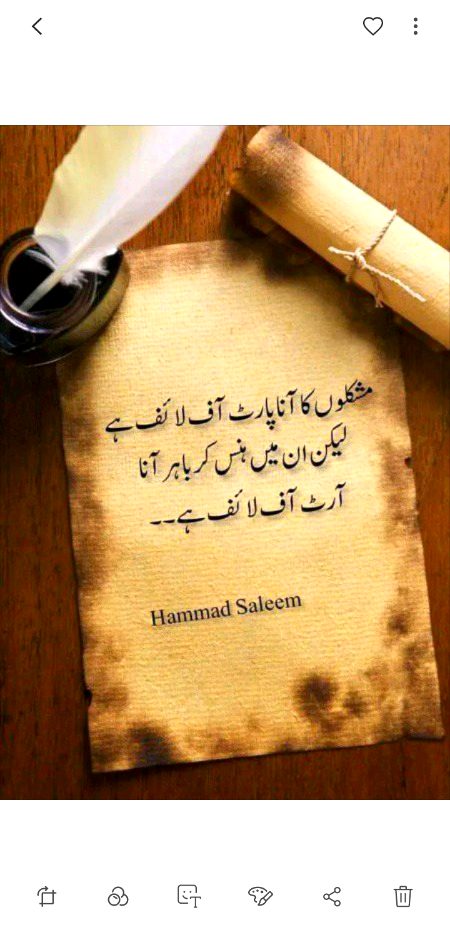 مشکلوں کا آنا پارٹ آف لائف ہے
لیکن ان میں ہنس کر باہر آنا
آرٹ آف لائف ہے۔۔
Hammad Saleem